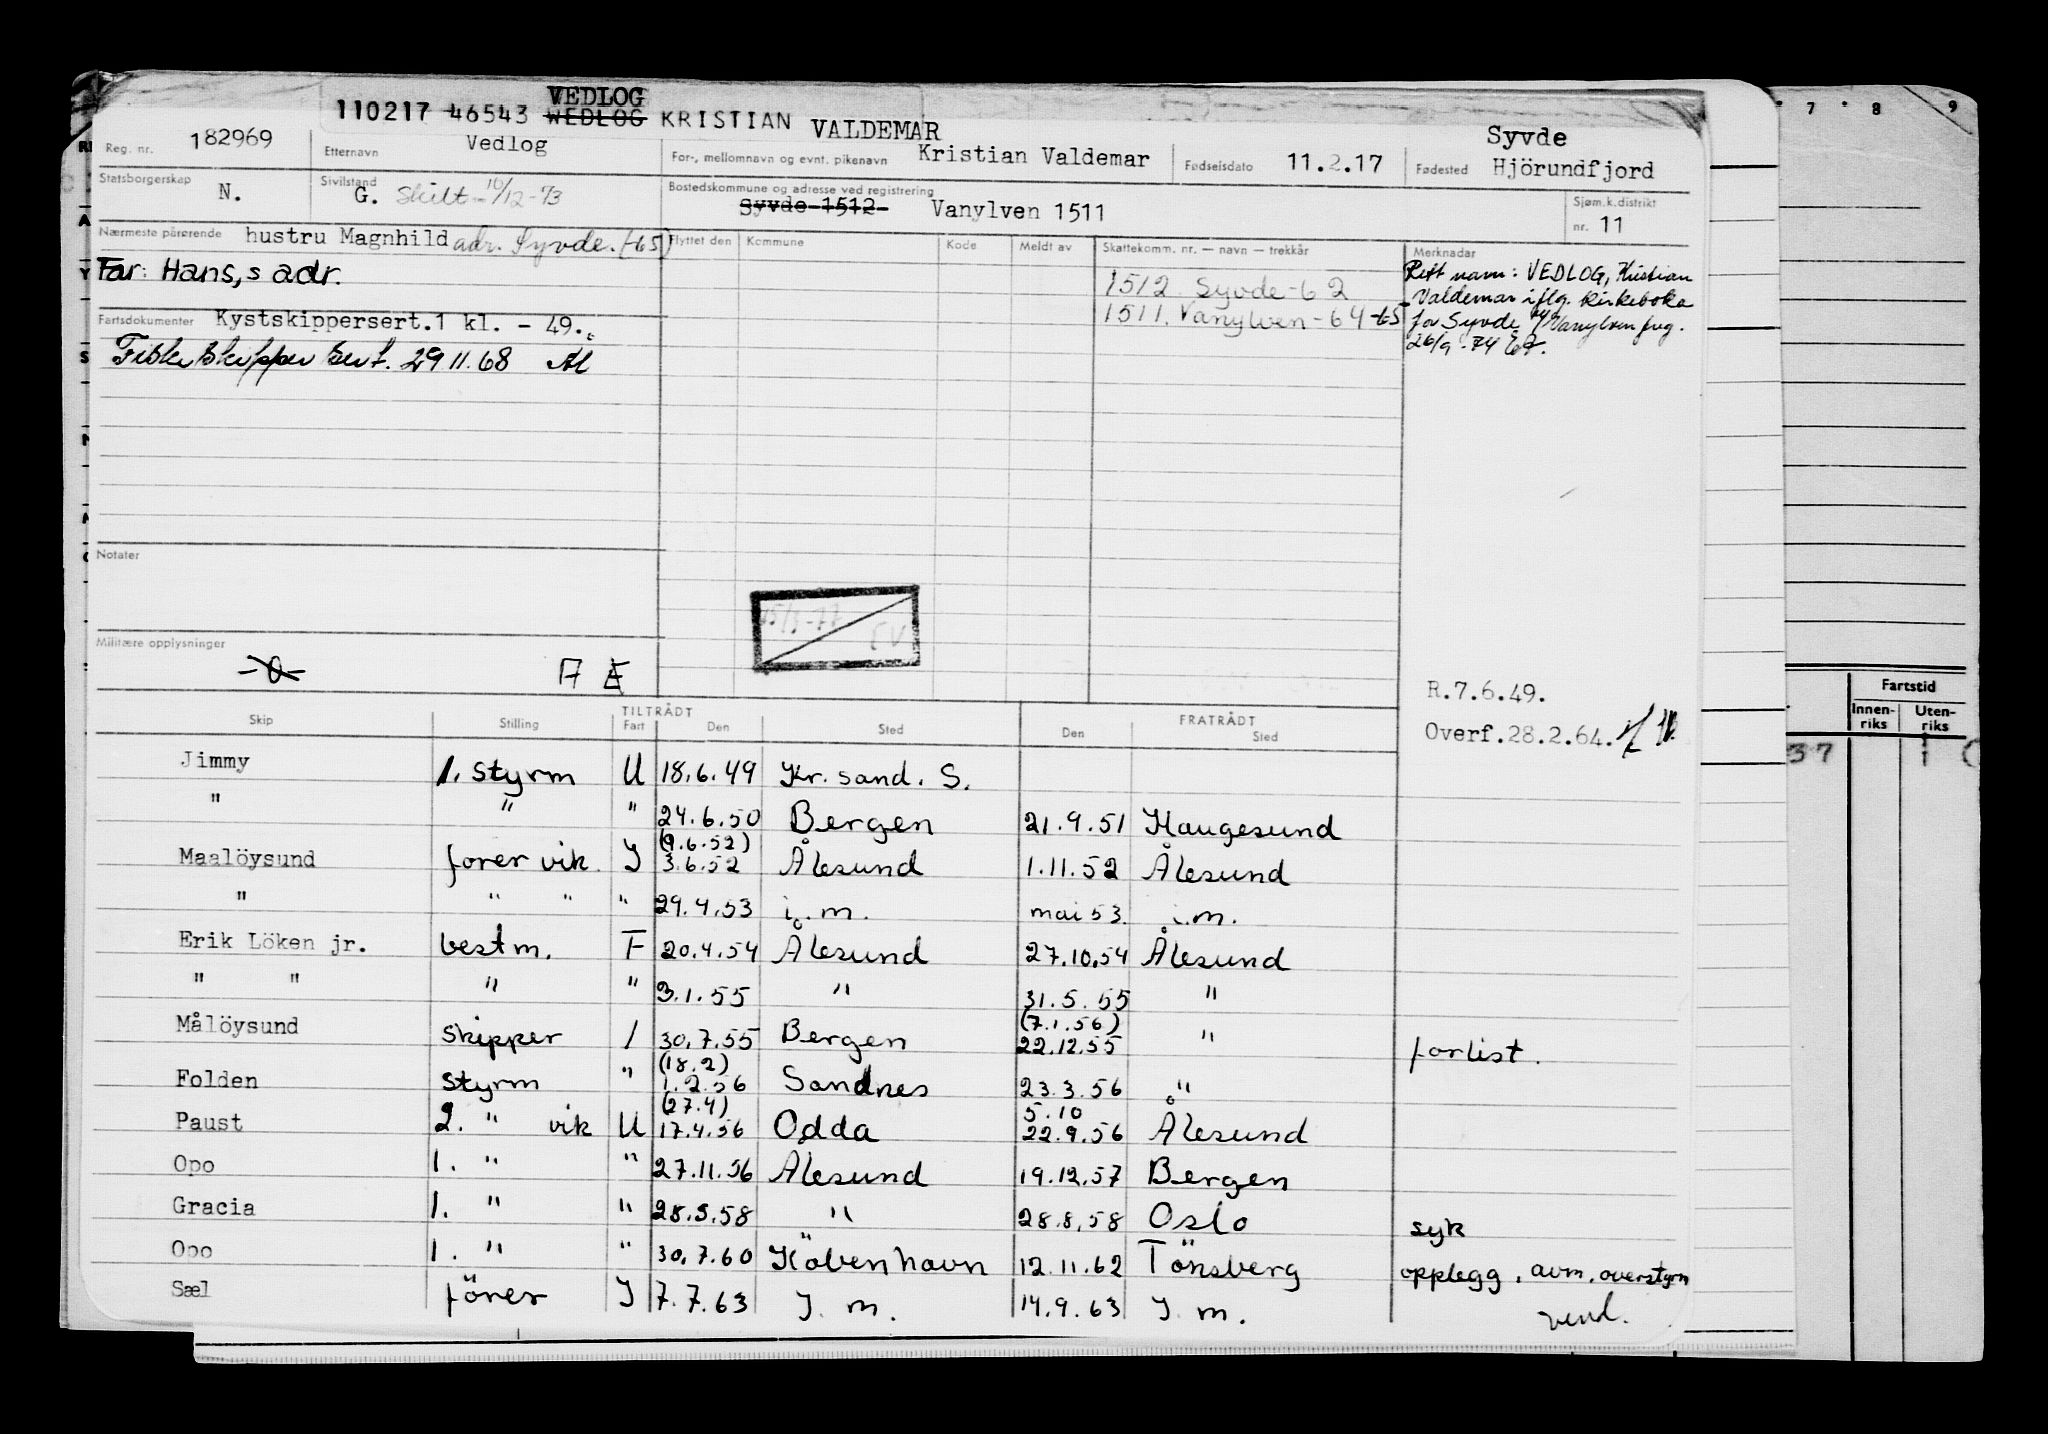 VEDLOG
110217 46543 WEDLOG KRISTIAN VALDEMAR
Reg. nr. 182969 Etternavn Vedlog For-, mellomnavn og evnt. pikenavn Kristian Valdemar Fødselsdato 11.2.17 Fødested Syvde Hjörundfjord
Statsborgerskap N. Sivilstand G. Skilt 10/12-73 Bostedskommune og adresse ved registrering Syvde 1512 Vanylven 1511 Sjøm.k.distrikt nr. 11
Nærmeste pårørende hustru Magnhild adr. Syvde. (-65) Flyttet den Kommune Kode Meldt av Skattekomm. nr. — navn — trekkår Merknadar
Far: Hans, s adr.
1512 Syvde-62
1511. Vanylven-64-65
Rett navn: VEDLOG, Kristian
Valdemar iflg. kirkeboka
for Syvde Vanylven
26/9-74
Fartsdokumenter Kystskippersert.1 kl. - 49.
Fiskeskipper sert. 29 11.68 Al
Notater
Militære opplysninger
-0- A Æ
R.7.6.49.
Overf.28.2.64.
TILTRÅDT FRATRÅDT
Skip Stilling Fart Den Sted Den Sted
Jimmy 1. styrm U 18.6.49 Kr. sand. S.
" " " 24.6.50 Bergen 21.9.51 Haugesund
(9.6.52)
Maalöysund fører vik. I 3.6.52 Ålesund 1.11.52 Ålesund
" " " " 29.4.53 i. m. mai 53. i.m.
Erik Löken jr. bestm. F 20.4.54 Ålesund 27.10.54 Ålesund
" " " " 3.1.55 " 31.5.55 "
(7.1.56)
Målöysund skipper I 30.7.55 Bergen 22.12.55 " forlist.
(18.2)
Folden styrm " 1.2.56 Sandnes 23.3.56 "
(27.4) 5.10
Paust 2. " vik U 17.4.56 Odda 22.9.56 Ålesund
Opo 1. " " 27.11.56 Ålesund 19.12.57 Bergen
Gracia 1. " " 28.3.58 " 28.8.58 Oslo syk
Opo 1. " " 30.7.60 Köbenhavn 12.11.62 Tönsberg opplegg, avm. overstyrm
Sæl förer I 7.7.63 I. m. 14.9.63 I. m.
vend.
7 8 9
Fartstid
Innenriks Utenriks
37 1